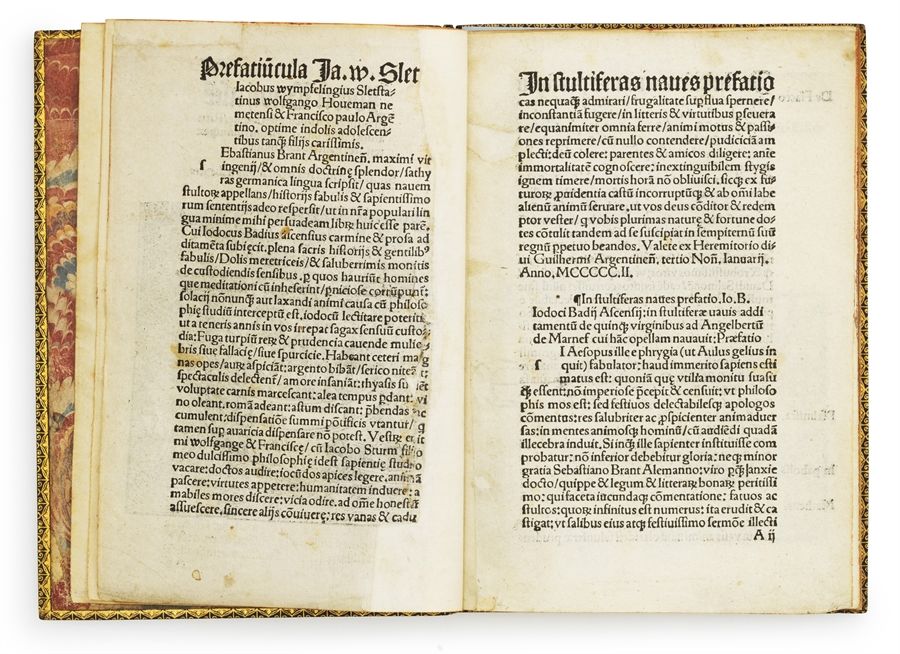 Prefatiũcula Ja. w. Slet
Iacobus wympfelingius Sletsta-
tinus wolfgango Houeman ne
metensi & Francisco paulo Argẽ
tino. optime indolis adolescen-
tibus tanq̃ filijs carissimis.
Ebastianus Brant Argentineñ. maximi vir
ſ ingenij/& omnis doctrinę splendor/sathy
ras germanica lingua scripsit/quas nauem
stultorꝝ appellans/historijs fabulis & sapientissimo
rum sententijs adeo respersit/ut in nr̃a populari lin
gua minime mihi persuadeam librꝝ huic esse parẽ.
Cui Iodocus Badius ascensius carmine & prosa ad
ditamẽta subiecit. plena sacris historijs & gentilibꝰ
fabulis/Dolis meretriceis/& saluberrimis monitis
de custodiendis sensibus. ꝑ quos hauriũt homines
que meditationi cũ inheserint/ꝑniciose corrũpunt:
solacij nonũquã aut laxandi animi causa cũ philoso
phię studiũ interceptũ est. iodocũ lectitare poteritis
ut a teneris annis in vos irrepat sagax sensuũ custo
dia: Fuga turpiũ rerꝝ & prudencia cauende mulie
bris siue fallacię/siue spurcicie. Habeant ceteri mag
nas opes/aurꝝ aspiciãt: argento bibãt/serico niteãt:
spectaculis delectent̃/amore insaniãt: rhyasis su ẽt
voluptate carnis marcescant: alea tempus ꝑdant: vi
no oleant. romã adeant: astum discant: p̃bendas ac
cumulent: dispensatiõe summi põtificis vtantur/q̃
tamen suꝑ auaricia dispensare nõ potest. Vestrꝝ erit
mi wolfgange & Franciscę/cũ Iacobo Sturmi filio
meo dulcissimo philosophię idest sapientię studio
vacare: doctos audire: iocũdos apices legere. animã
pascere: virtutes appetere: humanitatem induere: a
mabiles mores discere: vicia odire. ad om̃e honestũ
assuescere. sincere alijs cõuiuere: res vanas & cadu
In stultiferas naues prefatio
cas nequaq̃ admirari/frugalitate suꝑflua spernere/
inconstantiã fugere/in litteris & virtutibus ꝑseuera
re/equanimiter omnia ferre/animi motus & passi
ones reprimere/cũ nullo contendere/pudiciciã am
plecti: deũ colere: parentes & amicos diligere: ante
immortalitatẽ cognoscere: inextinguibilem stygis
ignem timere/mortis horã nõ obliuisci, sicq̃ ex fu
turorꝝ ꝓuidentia castũ incorruptũq̃ & ab omni labe
alienũ animũ seruare. ut vos deus cõditor & redem
ptor vester/q̃ vobis plurimas naturę & fortune do
tes cõtulit tandem ad se suscipiat in sempiternũ suũ
regnũ ꝑpetuo beandos. Valete ex Heremitorio di-
ui Guilhermi Argentineñ. tertio Noñ. Ianuarij.
Anno. MCCCCC.II.
¶In stultiferas naues prefatio. Io. B.
Iodoci Badij Ascensij: in stultiferæ nauis addi
tamentũ de quinq̃ virginibus ad Angelbertũ
de Marnef cui hãc opellam nauauit: Præfatio
I Aesopus ille e phrygia (ut Aulus gelius in
ſ quit) fabulator: haud immerito sapiens esti
matus est: quoniã quę vtilia monitu suasu
q̃ essent: nõ imperiose p̃cepit & censuit: vt philoso
phis mos est: sed festiuos delectabilesq̃ apologos
cõmentus: res salubriter ac ꝑspicienter animaduer
sas: in mentes animosq̃ hominũ/cũ audiẽdi quadã
illecebra induit. Si inq̃ ille sapienter instituisse com
probatur: nõ inferior debebitur gloria: neq̃ minor
gratia Sebastiano Brant Alemanno: viro ꝑq̃ anxie
docto/quippe & legum & litterarꝝ bonarꝝ peritissi
mo: qui faceta iucundaq̃ cõmentatione: fatuos ac
stultos: quorꝝ infinitus est numerus: ita erudit & ca
stigat: vt salibus eius atq̃ festiuissimo sermõe illecti
A ij